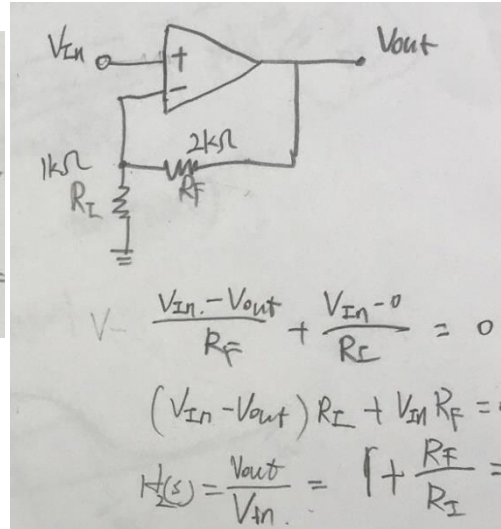 V_In + Vout
−
1kΩ 2kΩ
R_I R_F
V- (V_In - Vout)/R_F + (V_In - 0)/R_I = 0
(V_In - Vout) R_I + V_In R_F =
H_2(s) = Vout/V_In = 1 + R_F/R_I =